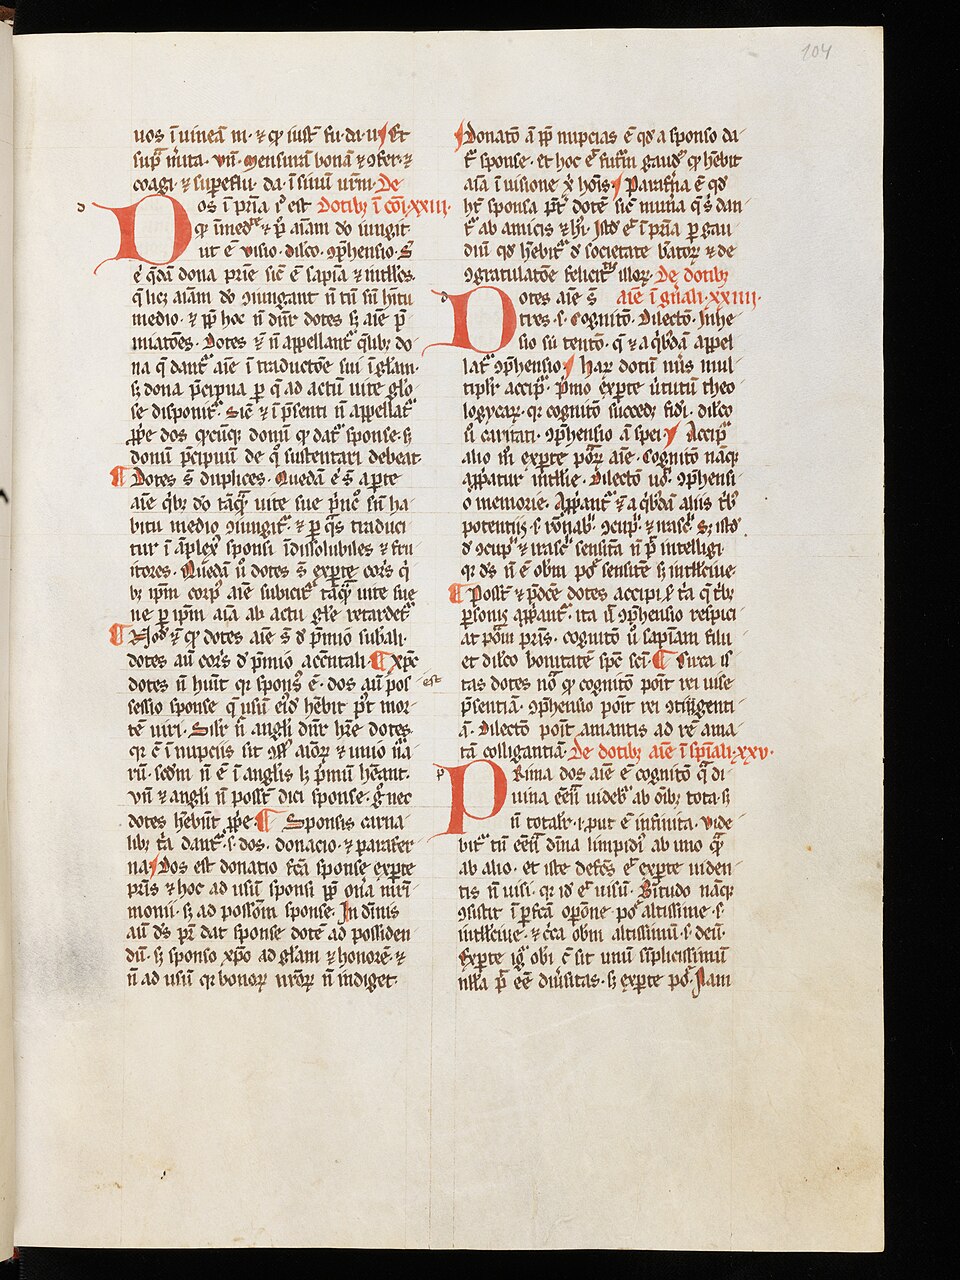 104
uos ī uineā m̄. ⁊ qͥ iustͫ fu. da. u. Et
supͣ mͥta. Vn̄. Mensurā bonā ⁊ ꝯfer. ⁊
coagi. ⁊ supeflu. da. ī sinū urm̄. De
Dos ī pr̄ia s̓ est Dotibꝫ ī cōi. xxiii.
qͥ īmedͤ ⁊ p̄ aīam do iungit
ut ē visio. dilcō. ꝯphensio. S̄
ē qdā dona prīe sic̄ ē sapīa ⁊ intlls̄.
q̄ licꝫ aīam dō ꝯiungant n̄ tn̄ sn̄ hītu
medio. ⁊ ꝓp hoc n̄ dn̄r dotes sꝫ aīe p̄
miatōes. Dotes ⁊ n̄ appellant᷑ qͥlibꝫ do
na q̄ dant᷑ aīe ī traductōe sui ī gl̄am.
sꝫ dona p̄cipua ꝑ q̄ ad actū uite glō
se disponit᷑. Sic̄ ⁊ ī p̄senti n̄ appellat᷑
ꝓpe dos qͥcūqꝫ donū qͥ dat᷑ sponse. sꝫ
donū p̄cipuū de qͦ sustentari debeat
¶ Dotes s̄ duplices. Quedā ē s̄ aparte
aīe qͥbꝫ do tāqͣ uite sue pͥncͦ sn̄ ha
bitu medio ꝯiungit᷑. ⁊ ꝑ qͣs traduci
tur ī āplexꝰ sponsi īdissolubiles ⁊ fru
itores. Quedā ū dotes s̄ exparte corꝑis qͥ
bꝫ ipm̄ corpꝰ aīe subicit᷑ tāqͣ uite sue
ne ꝑ ipm̄ aīa ab actu gl̄e retardet᷑
¶ Nōꝫ ⁊ qͥ dotes aīe s̄ d̓ pͥmio subāli.
dotes aū corꝑis d̓ pͥmio accn̄tali. ¶ Xpͨ
dotes n̄ hūit qr sponsꝰ ē. dos aū pos
est
sessio sponse q̄ usū eiꝰ hēbit pꝰt mor
tē uiri. Silr̄ n̄ angli dn̄r hr̄e dotes.
qr ē ī nupciis sit ꝯfͦ aīoꝝ ⁊ unio nͣa
rū. scdm̄ n̄ ē ī anglis lꝫ pͥmū hēant.
Vn̄ ⁊ angli n̄ poss̄t dici sponse. gͦ nec
dotes hēbūt ꝓpe. ¶ Sponsis carna
libꝫ tͥa dant᷑. s. dos. donacio. ⁊ parafer
na. Dos est donatio fc̄a sponse exparte
pr̄is ⁊ hoc ad usū sponsi ꝓp on̄a mr̄i
monii. sꝫ ad possōm sponse. In diuīs
aū dꝰ pr̄ dat sponse dotē ad possiden
dū. sꝫ sponso xp̄o ad gl̄am ⁊ honorē. ⁊
n̄ ad usū qr bonoꝝ nr̄oꝝ n̄ indiget.
Donatō ā ꝓp nupcias ē qͩ a sponso da
t᷑ sponse. et hoc ē sum̄ gaudͫ qͩ hēbit
aīa ī uisione xp̄ hōis. Parafr̄ia ē qͩ
ht᷑ sponsa pt᷑ dotē sic̄ munā q̄ s̓ dan
t᷑ ab amicis ⁊ hi. Istͩ ē ī pr̄ia ꝑ gau
diū qͩ hēbit᷑ d̓ societate bt̄oꝝ ⁊ de
ꝯgratulatōe felicitͣtis illoꝝ. De dotibꝫ
Dotes aīe s̄ aīe ī gn̄ali. xxiiii.
tres. s. Cognitō. Dilectō. Inhe
sio siū tentō. q̄ ⁊ a qͥbdā appel
lat᷑ ꝯphensio. Haꝝ dotū nūs mul
tiplr̄ accip᷑. Pͥmo exparte ūtutū theo
logycaꝝ. qr cognitō succedꝫ fidī. dilcō
ū caritati. ꝯphensio ā spei. Accip᷑
alio m̄ exparte poͣꝝ aīe. Cognitō nāqꝫ
app̄atur intllīe. Dilectō uō. ꝯphensi
o memorie. App̄ant᷑ ⁊ ā qͥbdā aliis tͥbꝫ
potentiis. s. rōnabͥ. ꝯcupͥ. ⁊ irascͥ. Sꝫ istͩ
d̓ ꝯcupͥ ⁊ irascͥ sensitā n̄ p̄ intelligi.
qr dꝰ n̄ ē obm̄ poͤ sensitē sꝫ intll̄ciue.
¶ Poss̄t ⁊ p̄dc̄e dotes accipi s̄ tā q̄ tͥbꝫ
ꝑsonis app̄ant᷑. ita ū ꝯphensio respici
at poām pr̄is. cognitō ū sapīam filii
et dilcō bonitatē spc̄ sc̄i. ¶ Circa is
tas dotes nō qͥ cognitō poīt rei uise
p̄sentiā. ꝯphensio poīt rei ꝯtigenti
ā. Dilectō poīt amantis ad rē ama
tā colligantiā. De dotibꝫ aīe ī spāli. xxv.
Prima dos aīe ē cognitō q̄ di
uina eēn̄ uidebꝰ ab oībꝫ tota. sꝫ
n̄ totalr̄. i. put ē infinita. Vide
bit᷑ tn̄ eēn̄ dīna limpidꝰ ab uno qͣ
ab alio. et iste defc̄s ē exparte viden
tis n̄ uisi. qr idͫ ē uisū. Btītudo nāqꝫ
ꝯsistit ī ꝑfc̄a opōne poͤ altissime. s.
intll̄ciue. ⁊ cͥca obm̄ altissimū. s. deū.
Exparte igͦ obi cͫ sit unū simplicissimū
nlla p̄ eē diu̓sitas. sꝫ exparte poͤ. Nam